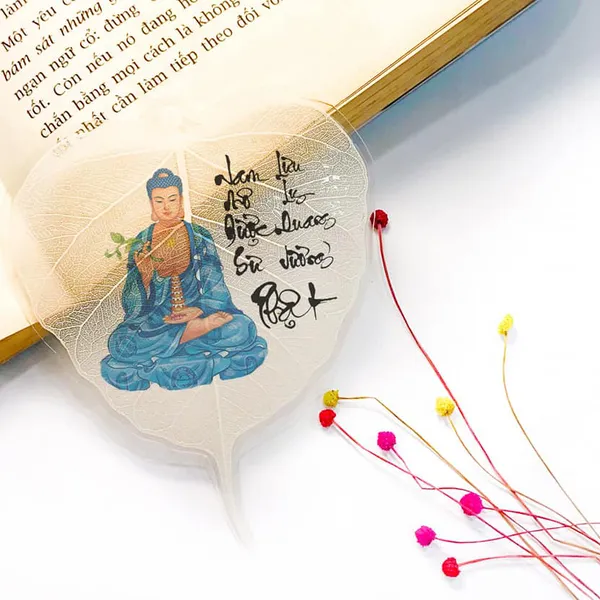 làm
Một yêu
bám sát những
ngạn ngữ cổ: đừng
tốt. Còn nếu nó đang
chắn bằng mọi cách là không
nhất cần làm tiếp theo đối
Nam Lưu
Mô Ly
Dược Quang
Sư Vương
Phật